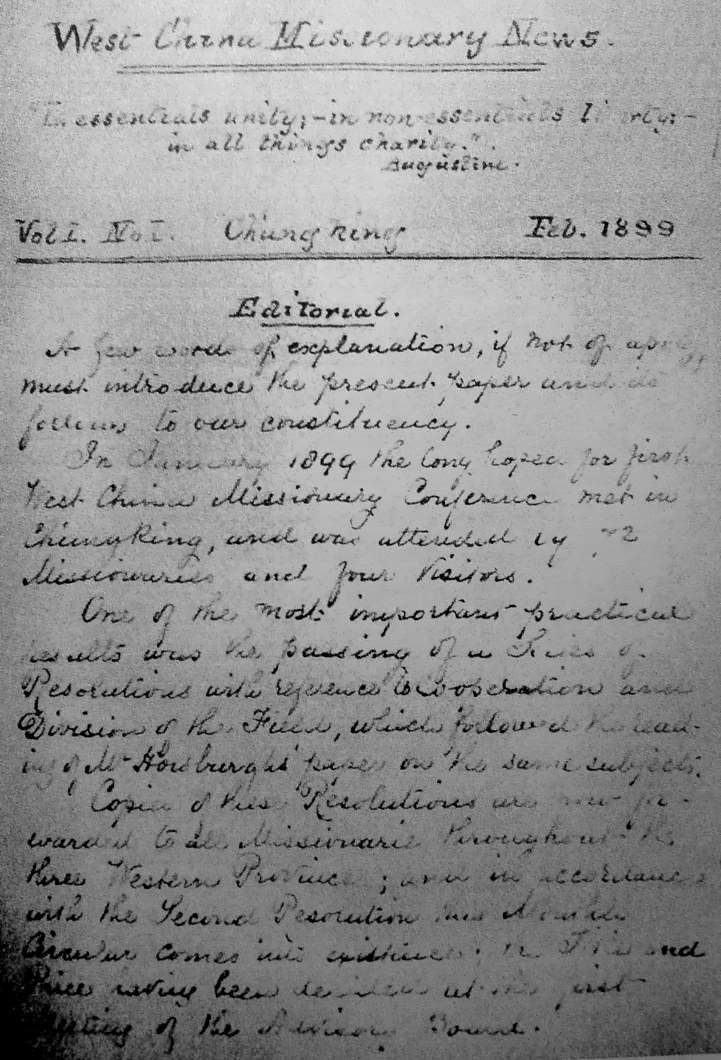 West China Missionary News.
"In essentials unity;—in non-essentials liberty:—
in all things charity."
Augustine.
Vol I. No I. Chungking Feb. 1899
Editorial.
A few words of explanation, if not of apology,
must introduce the present paper and its
to our constituency.
In January 1899 the long hoped for first
West China Missionary Conference met in
Chungking, and was attended by
Missionaries and four Visitors.
One of the most important practical
results was the passing of a Series of
Resolutions with reference to Cooperation and
Division of the Field, which followed the read-
ing of Mr Horsburgh's paper on the same subject.
Copies of these Resolutions are now for-
warded to all Missionaries throughout the
three Western Provinces; and in accordance
with the Second Resolution this Monthly
Circular comes into existence: the Title and
Price having been decided at the first
Meeting of the Advisory Board.